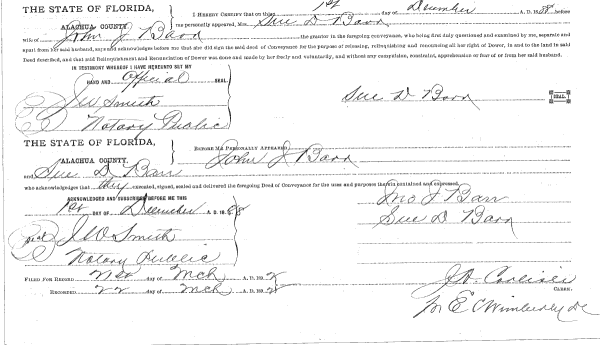 THE STATE OF FLORIDA,
ALACHUA COUNTY.
I HEREBY CERTIFY that on this 1st day of December A. D. 1888 before
me personally appeared, Mrs. Sue D Barr
wife of John J Barr the grantor in the foregoing conveyance, who being first duly questioned and examined by me, separate and
apart from her said husband, says and acknowledges before me that she did sign the said deed of Conveyance for the purpose of releasing, relinquishing and renouncing all her right of Dower, in and to the land in said
Deed described, and that said Relinquishment and Renunciation of Dower was done and made by her freely and voluntarily, and without any compulsion, constraint, apprehension or fear of or from her said husband.
IN TESTIMONY WHEREOF I HAVE HEREUNTO SET MY
HAND AND Official SEAL
J W Smith
Notary Public
Sue D Barr SEAL.
THE STATE OF FLORIDA,
ALACHUA COUNTY.
BEFORE ME PERSONALLY APPEARED John J Barr
AND Sue D. Barr
who acknowledges that they executed, signed, sealed and delivered the foregoing Deed of Conveyance for the uses and purposes therein contained and expressed.
ACKNOWLEDGED AND SUBSCRIBED BEFORE ME THIS
1st DAY OF December A. D. 1888
Jno J Barr
Sue D Barr
Seal J W Smith
Notary Public
FILED FOR RECORD day of Mch A. D. 189
RECORDED 22 day of Mch A. D. 189
J. A. Carlisle
CLERK.
Pr E C Wimberly DC